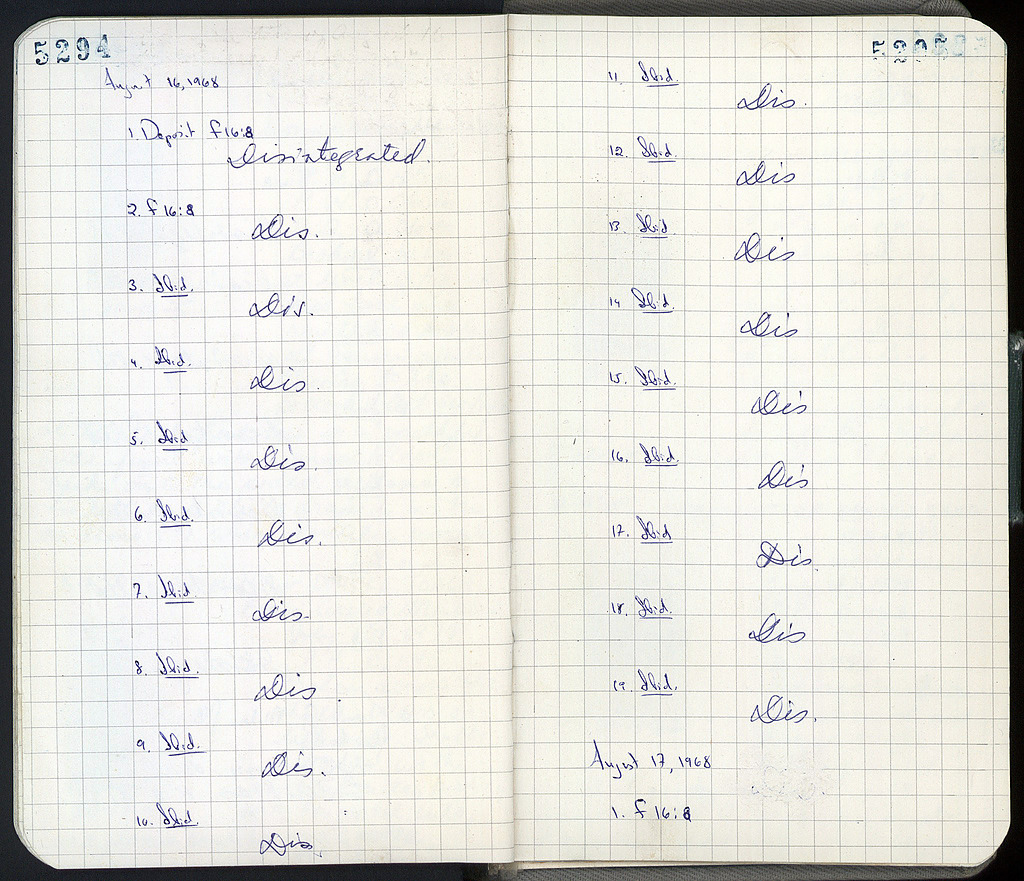 5294
August 16, 1968
1. Deposit F16:8
Disintegrated.
2. F 16:8
Dis.
3. Ibid.
Dis.
4. Ibid.
Dis.
5. Ibid
Dis.
6. Ibid.
Dis.
7. Ibid.
Dis.
8. Ibid.
Dis.
9. Ibid.
Dis.
10. Ibid.
Dis.
5295
11. Ibid.
Dis.
12. Ibid.
Dis
13. Ibid
Dis
14 Ibid.
Dis
15. Ibid.
Dis
16. Ibid.
Dis
17. Ibid
Dis.
18. Ibid.
Dis
19. Ibid.
Dis.
August 17, 1968
1. F 16:8